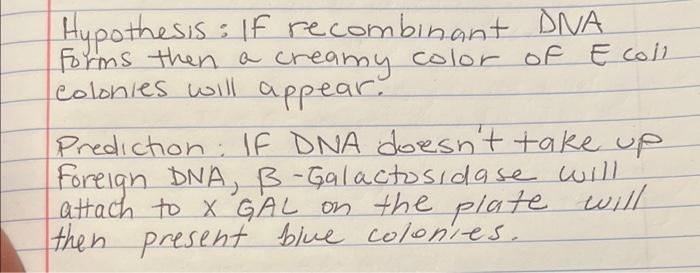 Hypothesis : If recombinant DNA
forms then a creamy color of E coli
colonies will appear.
Prediction : If DNA doesn't take up
foreign DNA, β-Galactosidase will
attach to X GAL on the plate will
then present blue colonies.